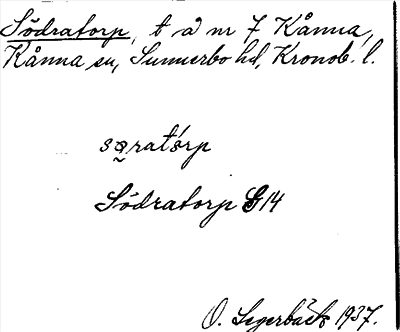 Södratorp, t a nr 7 Kånna,
Kånna sn, Sunnerbo hd, Kronob. l.
sɷ̯rat́ɷrp
Södratorp G 14
O. Segerbäck 1937.